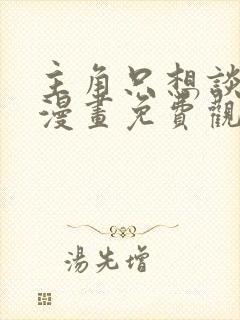 主角只想談
漫畫免費觀
湯先增